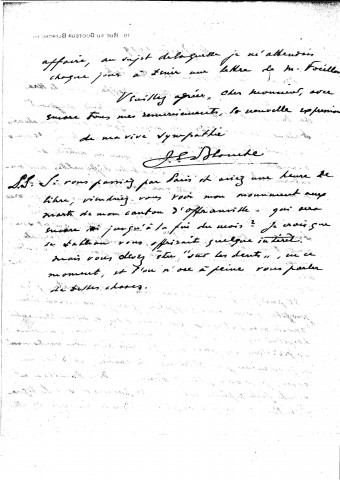 19 Rue du Docteur Blanche
affaire, au sujet de laquelle je m'attendais
chaque jour à tenir une lettre de M.
Veuillez agréer, cher monsieur, avec
encore tous mes remerciements, la nouvelle expression
de ma vive sympathie
J E Blanche
P.S. Si vous passiez par Paris et aviez une heure de
libre, viendriez vous voir mon monument aux
morts de mon canton d'Offranville - qui sera
encore ici jusqu'à la fin du mois? Je crois que
ce vous offrirait quelque intérêt.
mais vous devez être "sur les dents", en ce
moment, et l'on n'ose à peine vous parler
de telles choses.